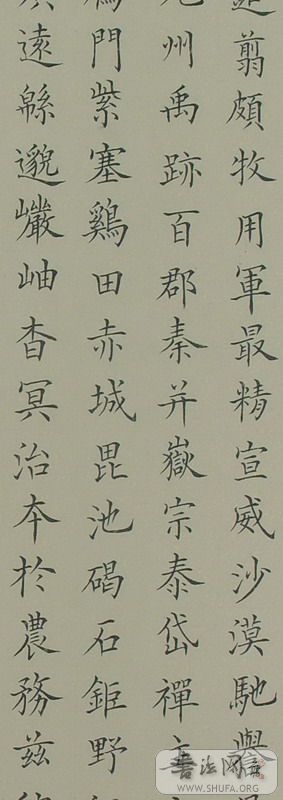 翦頗牧用軍最精宣威沙漠馳譽
州禹跡百郡秦并嶽宗泰岱禪主
門紫塞鷄田赤城昆池碣石鉅野
遠緜邈巖岫杳冥治本於農務茲
書法网
WWW.SHUFA.ORG